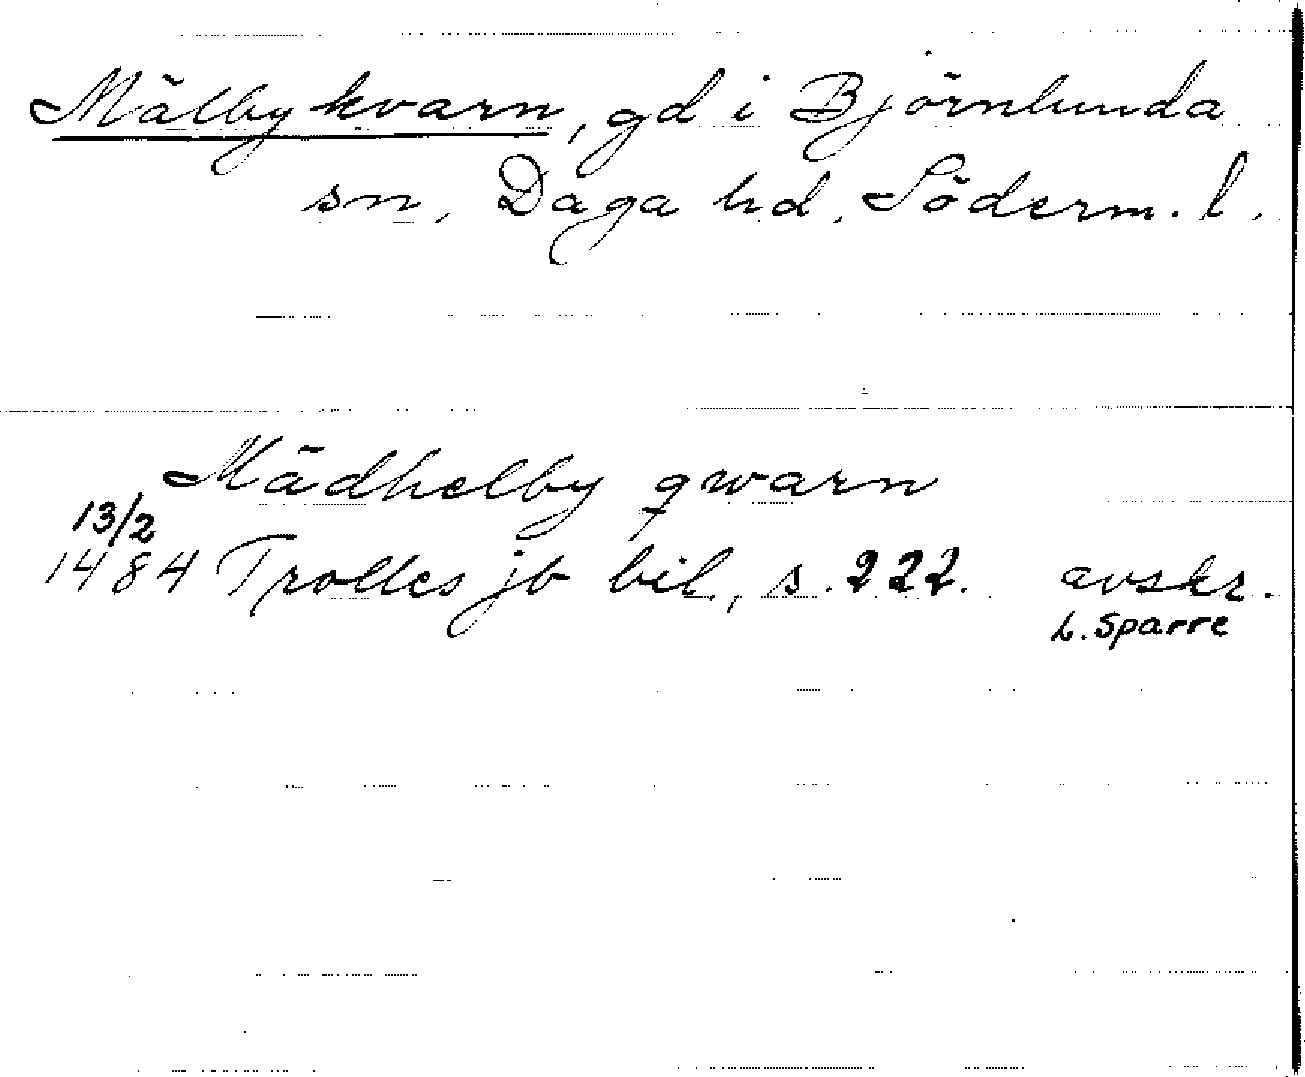 Mälby kvarn, gd i Björnlunda
sn, Daga hd, Söderm. l.
Mädhelby qwarn
13/2
1484 Trolles jb bil., s. 222. avskr.
L. Sparre